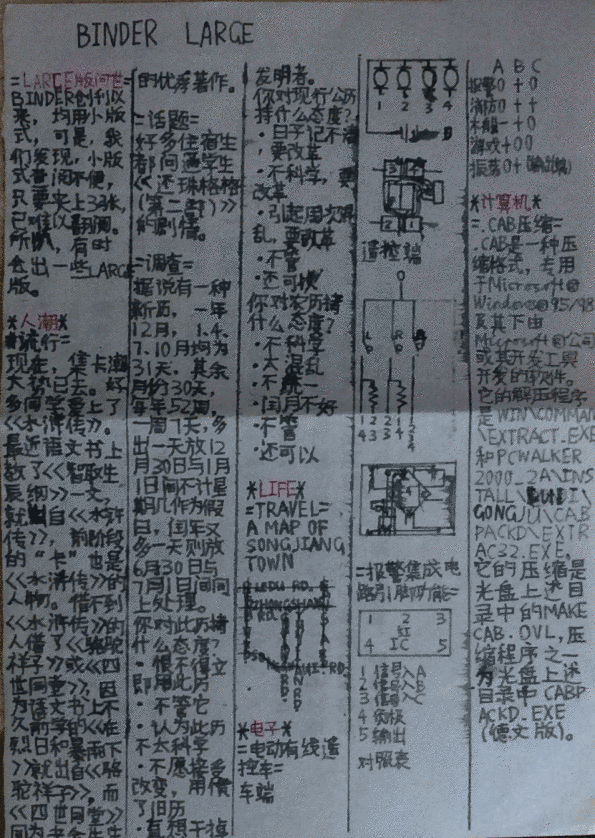 BINDER LARGE
=LARGE版问世=
BINDER创刊以
来，均用小版
式，可是，我
们发现，小版
式查阅不便，
只要夹上3张，
已难以翻阅。
所以，有时
会出一些LARGE
版。
*人潮*
=流行=
现在，集卡潮
大势已去。好
多同学爱上了
<<水浒传>>。
最近语文书上
教了<<智取生
辰纲>>一文，
就出自<<水浒
传>>，前阶段
的“卡”也是
<<水浒传>>的
人物。借不到
<<水浒传>>的
人借了<<骆驼
祥子>>或<<四
世同堂>>，因
为语文书上不
久前学的<<在
烈日和暴雨下
>>就出自<<骆
驼祥子>>，而
<<四世同堂>>
同为老舍先生
的优浮著作。
=话题=
好多住宿生
都问通学生
<<还珠格格
(第二部)>>
的剧情。
=调查=
据说有一种
新历，一年
12月，1.4.
7.10月均为
31天，其余
月份30天，
每年52周，
一周7天，多
出一天放12
月30日与1月
1日间不计星
期几作为假
日，闰年又
多一天则放
6月30日与
7月1日间同
上处理。
你对此历持
什么态度？
·恨不得立
即用此历
·不管它
·认为此历
不太科学
·不愿接受
改变，用惯
了旧历
·有想干掉
发明者。
你对现行公历
持什么态度？
·日子记不清
，要改革
·不科学，要
改革
·引起周次混
乱，要改革
·不管
·还可以
你对农历持
什么态度？
·不科学
·太混乱
·不统一
·闰月不好
·不管
·还可以
*LIFE*
=TRAVEL=
A MAP OF
SONGJIANG
TOWN
LEDU RD.
ZHONGSHAN
RD.
*电子*
=电动有线遥
控车=
车端
1 2 3 4
遥控端
=报警集成电
路引脚功能=
1 2 3
红
4 IC 5
1 信号入A
2 信号入B
3 信号入C
4 效枝
5 输出
对照表
A B C
报警0 + 0
消防0 + +
游戏+ 0 0
*计算机*
=.CAB压缩=
.CAB是一种压
缩格式，专用
于Microsoft®
Windows®95/98
及其下由
Microsoft®公司
或其开发工具
开发的软件。
它的解压程序
是WIN\COMMAN
\EXTRACT.EXE
和PCWALKER
2000_2A\INS
TALL\
GONGJU\CAB
PACKD\EXTR
AC32.EXE。
它的压缩是
光盘上述目
录中的MAKE
CAB.OVL，压
缩程序之一
为光盘上述
目录中CABP
ACKD.EXE
(德文版)。